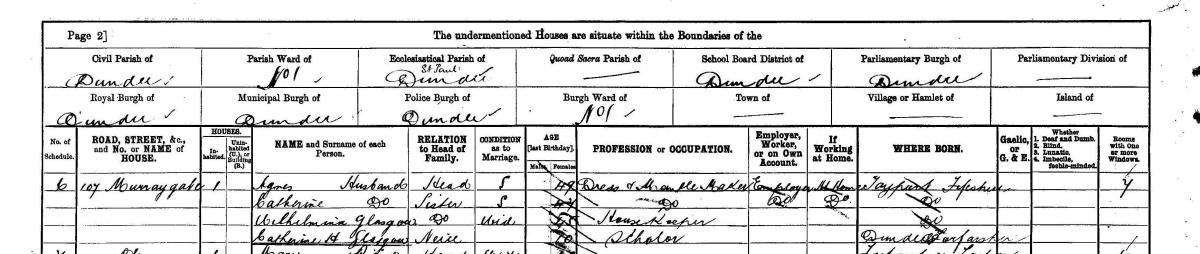 Page 2] The undermentioned Houses are situate within the Boundaries of the
Civil Parish of Parish Ward of Ecclesiastical Parish of Quoad Sacra Parish of School Board District of Parliamentary Burgh of Parliamentary Division of
St Paul
Dundee No 1 Dundee Dundee Dundee
Royal Burgh of Municipal Burgh of Police Burgh of Burgh Ward of Town of Village or Hamlet of Island of
Dundee Dundee Dundee No 1
No. of Schedule. ROAD, STREET, &c., and No. or NAME of HOUSE. HOUSES. Inhabited. Uninhabited (U.), or Building (B.) NAME and Surname of each Person. RELATION to Head of Family. CONDITION as to Marriage. AGE [last Birthday]. Males Females PROFESSION or OCCUPATION. Employer, Worker, or on Own Account. If Working at Home. WHERE BORN. Gaelic, or G. & E. Whether 1. Deaf and Dumb. 2. Blind. 3. Lunatic. 4. Imbecile, feeble-minded. Rooms with one or more Windows.
6 107 Murraygate 1 Agnes Husband Head S 49 Dress & Mantle Maker Employer At Home Tayport Fifeshire
Catherine Do Sister S Do Do Do
Wilhelmina Glasgow Do Wid House Keeper Do
Catherine H Glasgow Neice Scholar Dundee Forfarshire